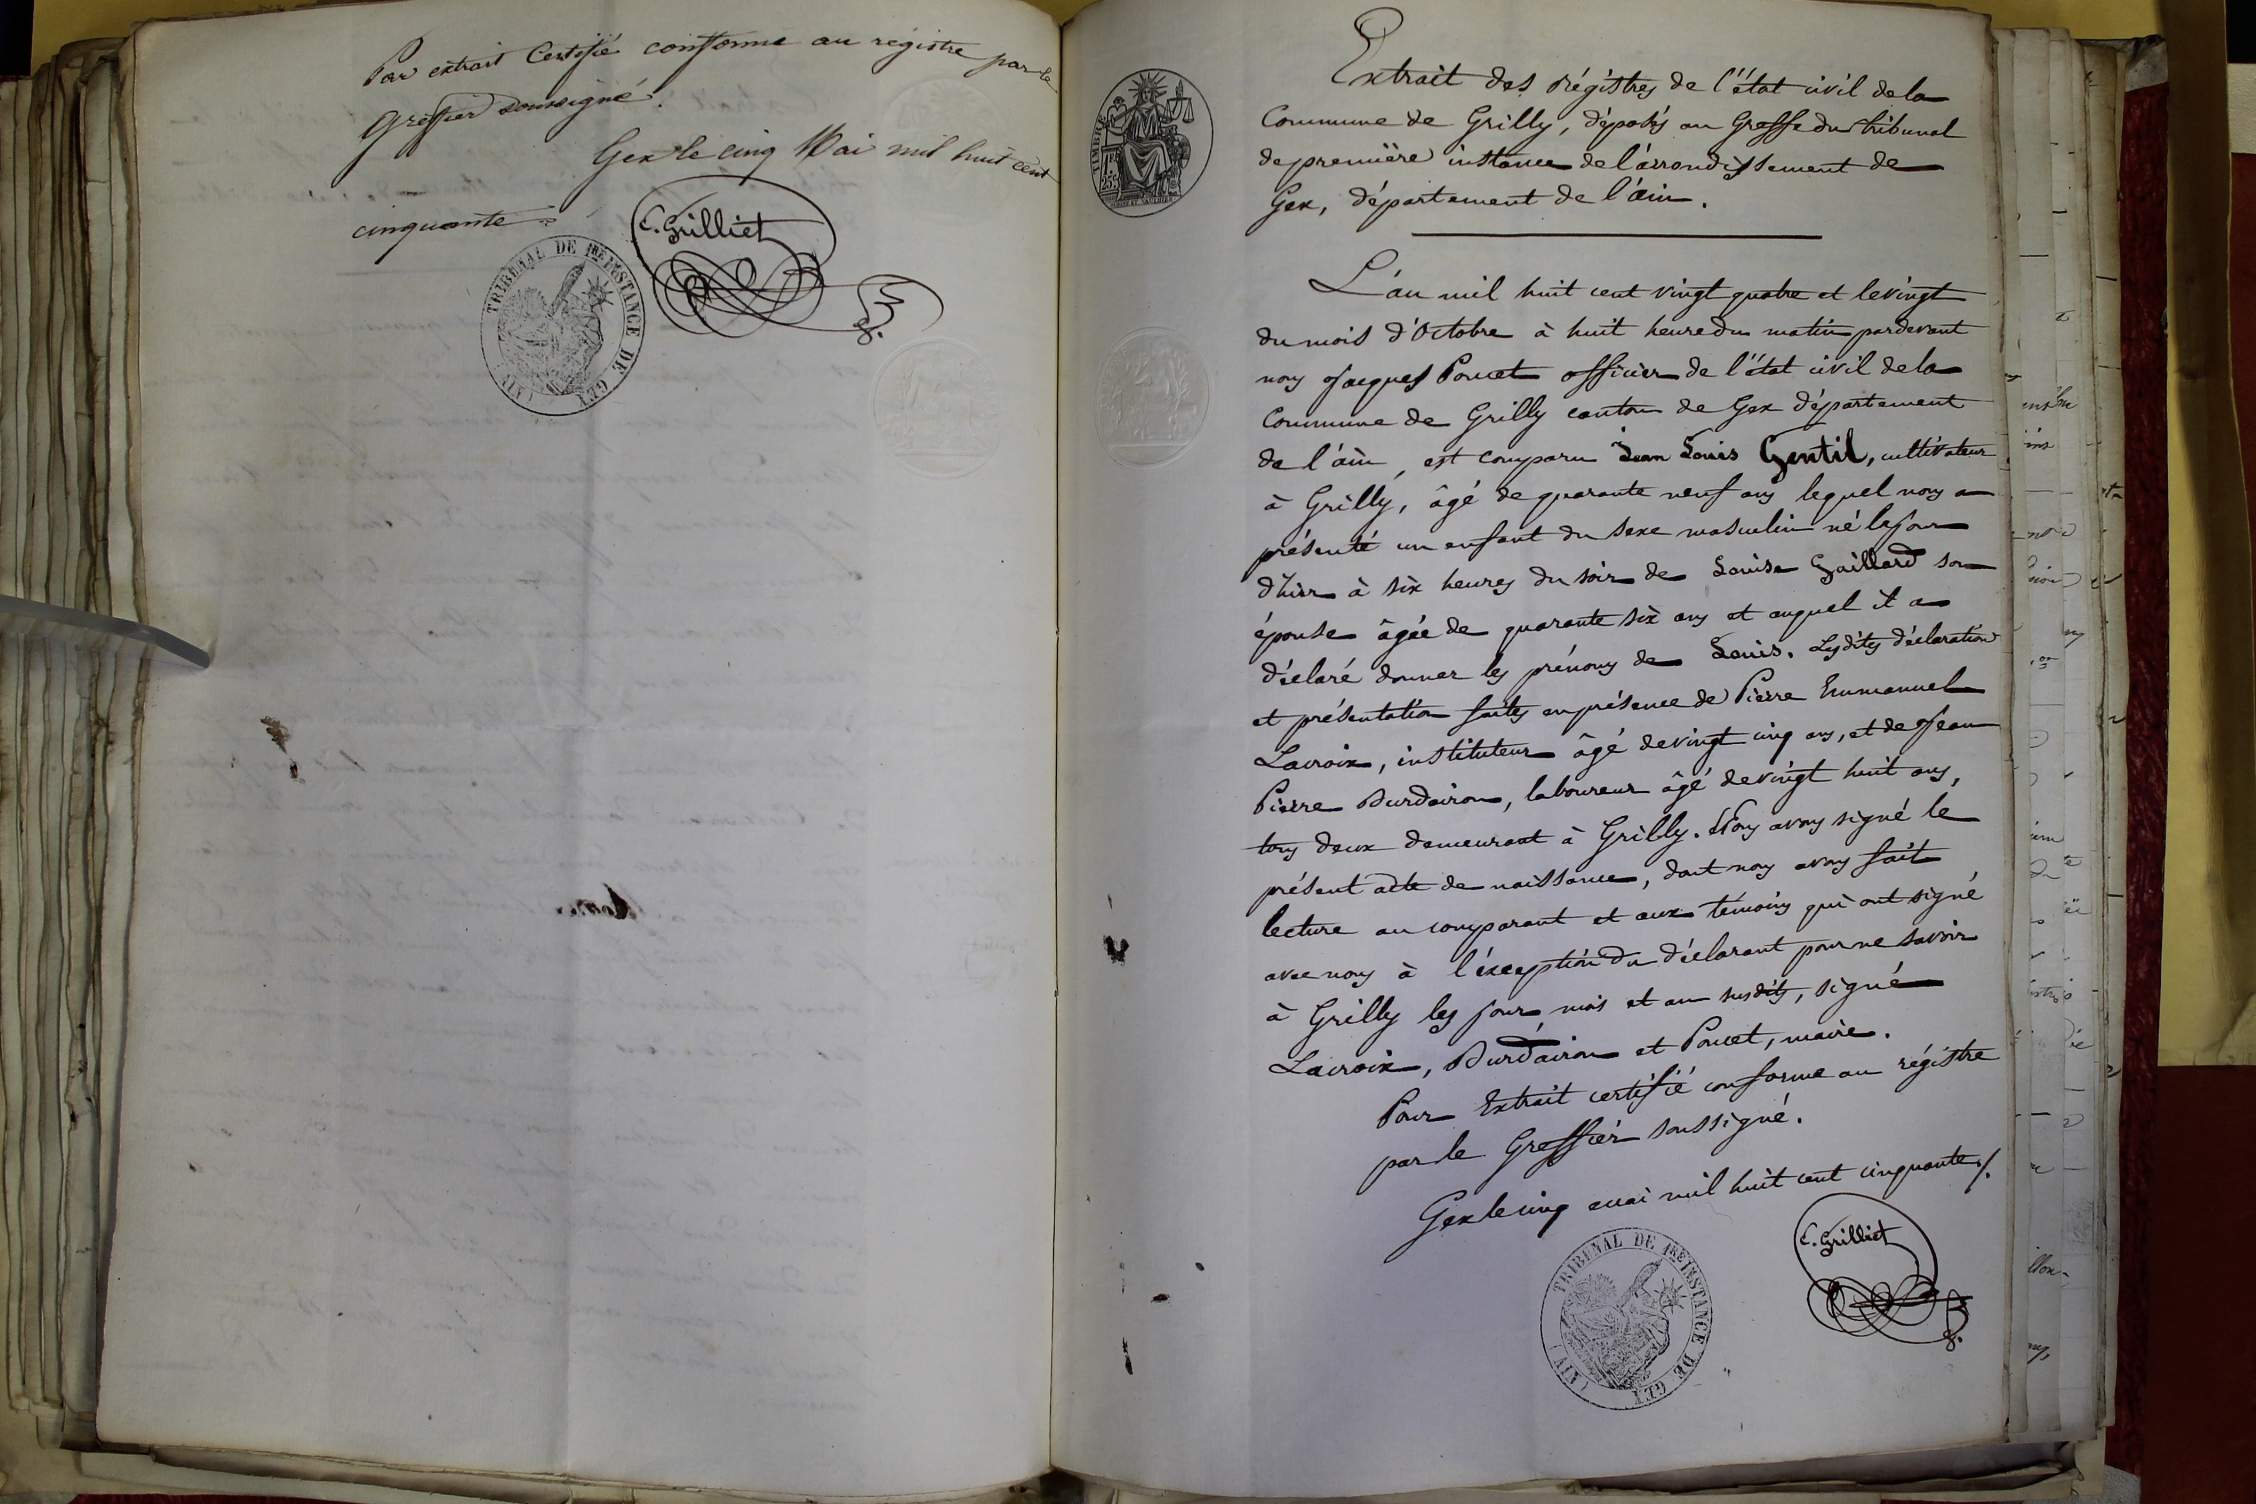 Par extrait Certifié conforme au régistre par le
Greffier soussigné.
Gex le cinq Mai mil huit cent
cinquante
C. Grilliet
TRIBUNAL DE 1RE INSTANCE DE GEX (AIN)
TIMBRE
Extrait des régistres de l'état civil de la
Commune de Grilly, déposés au Greffe du tribunal
de première instance de l'arrondissement de
Gex, département de l'ain.
L'an mil huit cent vingt quatre et le vingt
du mois d'Octobre à huit heure du matin pardevant
nous Jacques Poncet officier de l'état civil de la
Commune de Grilly canton de Gex département
de l'ain, est comparu Jean Louis Gentil, cultivateur
à Grilly, âgé de quarante neuf ans lequel nous a
présenté un enfant du sexe masculin né le jour
d'hier à six heures du soir de Louise Gaillard son
épouse âgée de quarante six ans et auquel il a
déclaré donner les prénoms de Louis. Lesdites déclaration
et présentation faites en présence de Pierre Emmanuel
Lacroix, instituteur âgé de vingt cinq ans, et de Jean
Pierre Burdairon, laboureur âgé de vingt huit ans,
tous deux demeurant à Grilly. Nous avons signé le
présent acte de naissance, dont nous avons fait
lecture au comparant et aux témoins qui ont signé
avec nous à l'éxception du déclarant pour ne savoir
à Grilly les jour mois et an susdits, signé
Lacroix, Burdairon et Poncet, maire.
Pour Extrait certifié conforme au régistre
par le Greffier soussigné.
Gex le cinq mai mil huit cent cinquante./.
C. Grilliet
TRIBUNAL DE 1RE INSTANCE DE GEX (AIN)